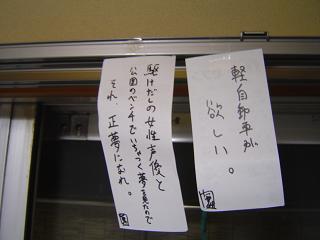 軽自動車が
欲しい。
駆けだしの女性声優と
公園のベンチでいちゃつく夢を見たので
それ、正夢になれ。